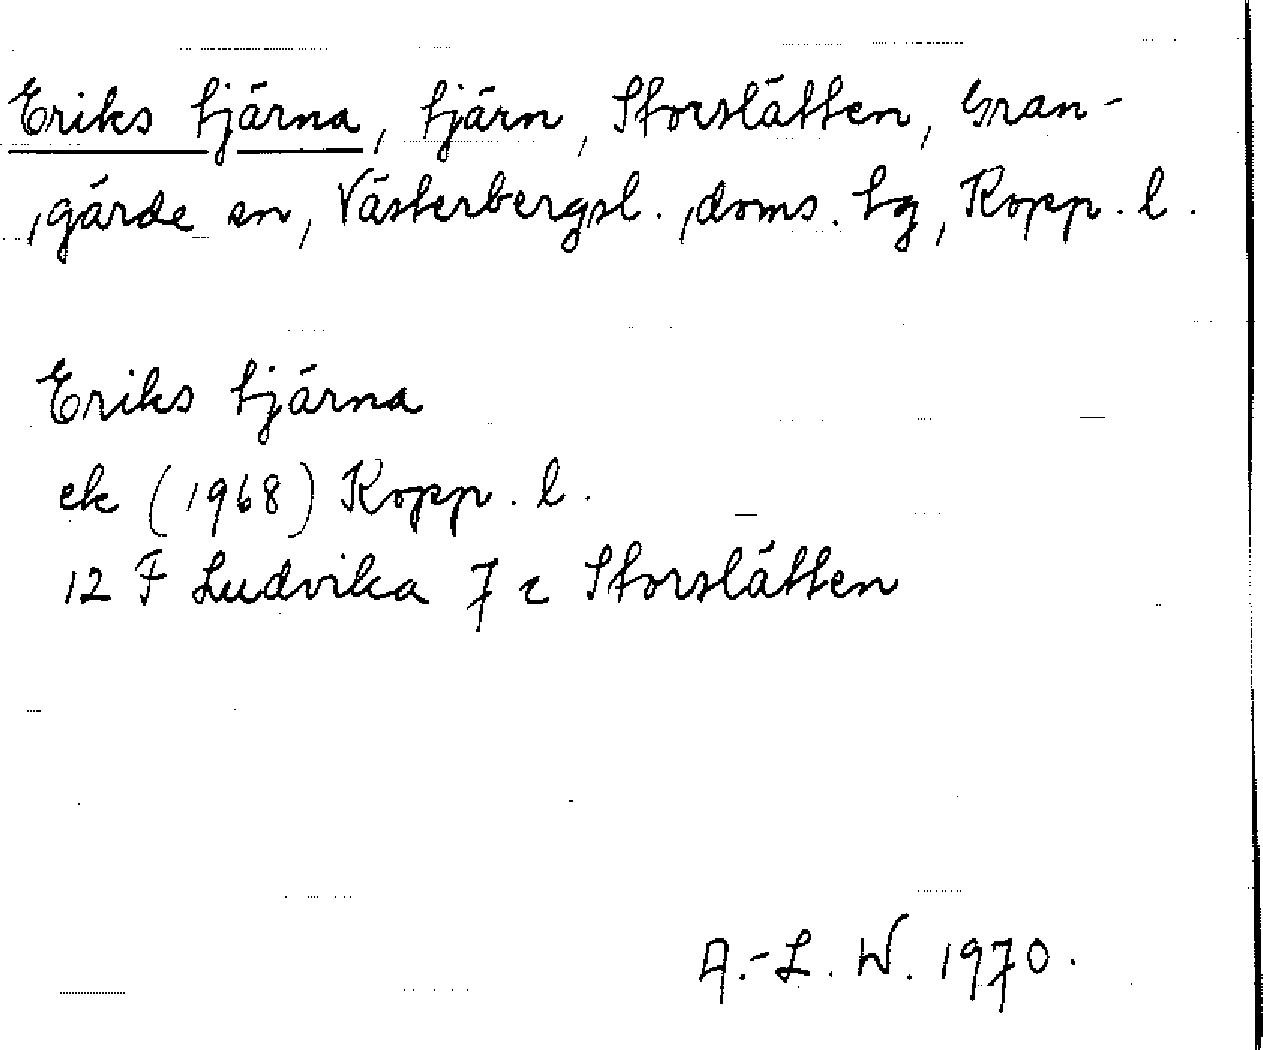 Eriks tjärna, tjärn, Storslätten, Gran-
gärde sn, Västerbergsl. doms. tg, Kopp. l.
Eriks tjärna
ek (1968) Kopp. l.
12 F Ludvika 7 c Storslätten
A.-L. W. 1970.